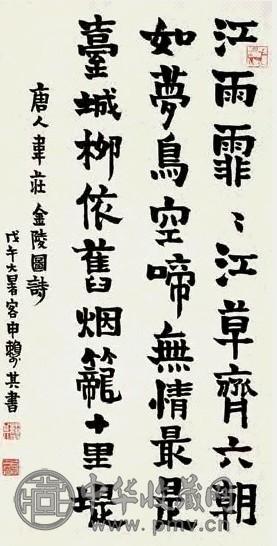 江雨霏〻江草齊六朝
如夢鳥空啼無情最是
臺城柳依舊烟籠十里堤
唐人韋莊金陵圖詩
戊午大暑客申賴少其書
中华收藏网
www.pmv.cn